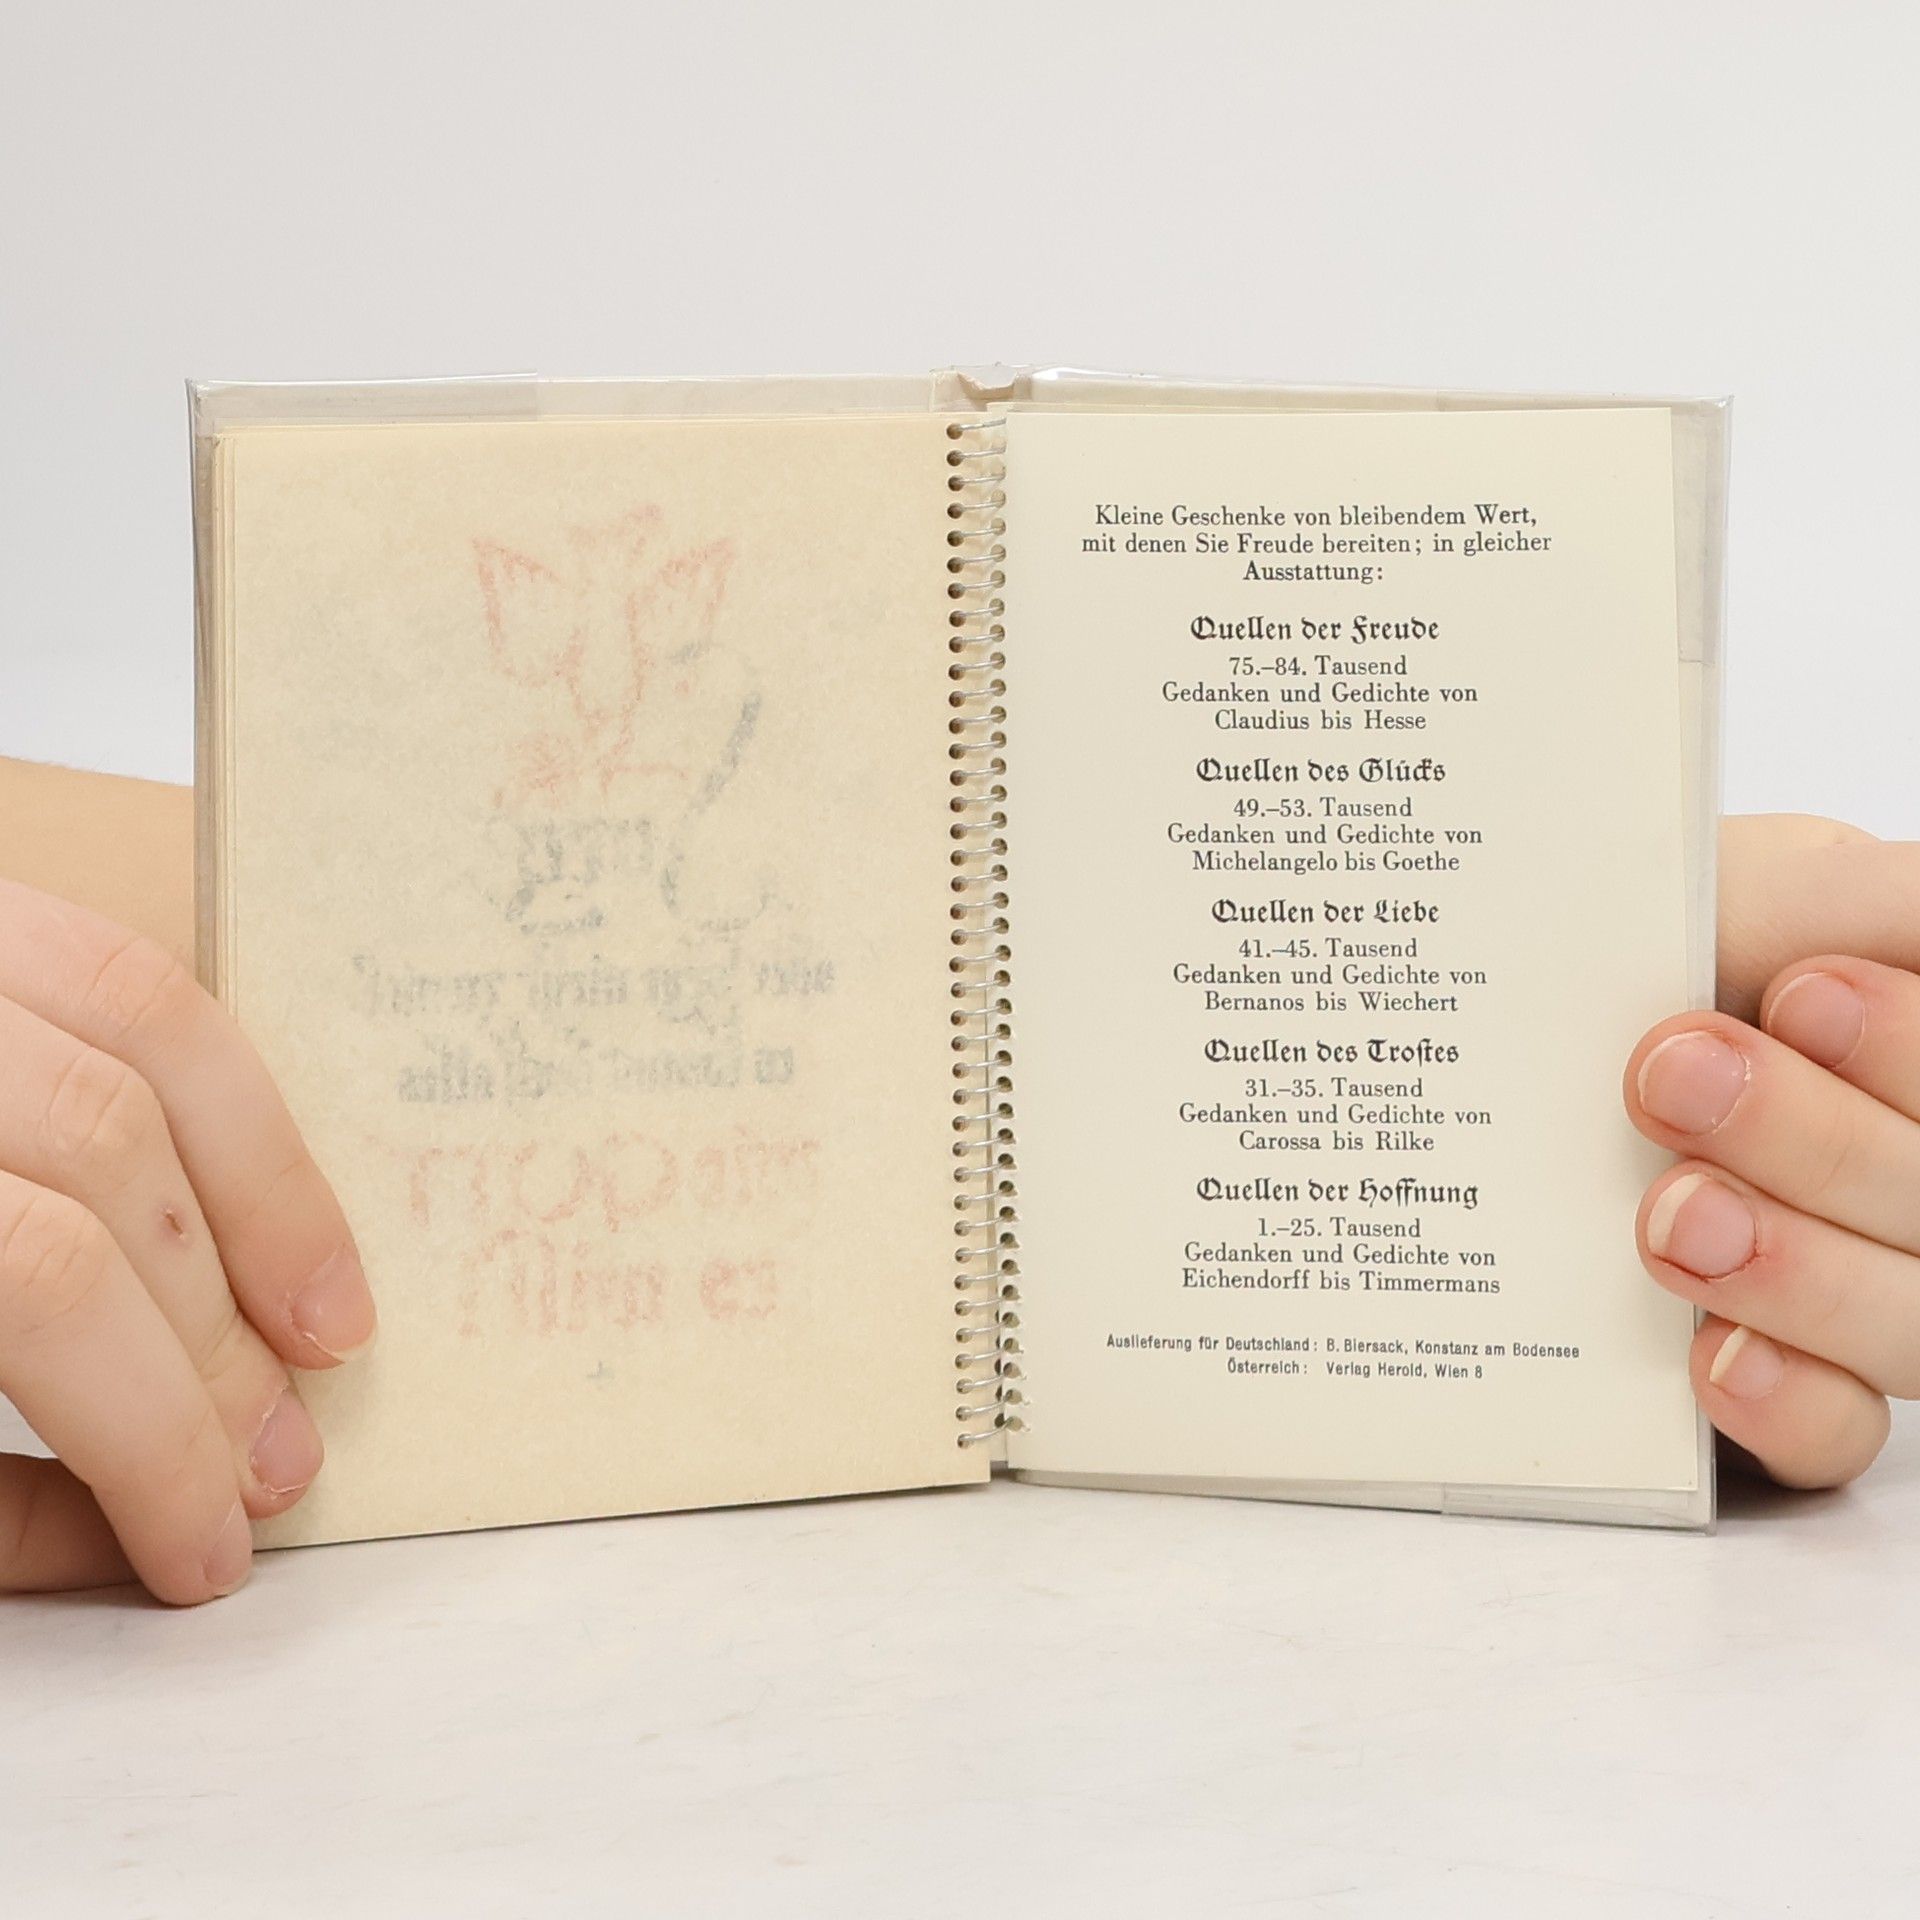 wie GOTT
es will!
Kleine Geschenke von bleibendem Wert,
mit denen Sie Freude bereiten; in gleicher
Ausstattung:
Quellen der Freude
75.–84. Tausend
Gedanken und Gedichte von
Claudius bis Hesse
Quellen des Glücks
49.–53. Tausend
Gedanken und Gedichte von
Michelangelo bis Goethe
Quellen der Liebe
41.–45. Tausend
Gedanken und Gedichte von
Bernanos bis Wiechert
Quellen des Trostes
31.–35. Tausend
Gedanken und Gedichte von
Carossa bis Rilke
Quellen der Hoffnung
1.–25. Tausend
Gedanken und Gedichte von
Eichendorff bis Timmermans
Auslieferung für Deutschland: B. Biersack, Konstanz am Bodensee
Österreich: Verlag Herold, Wien 8